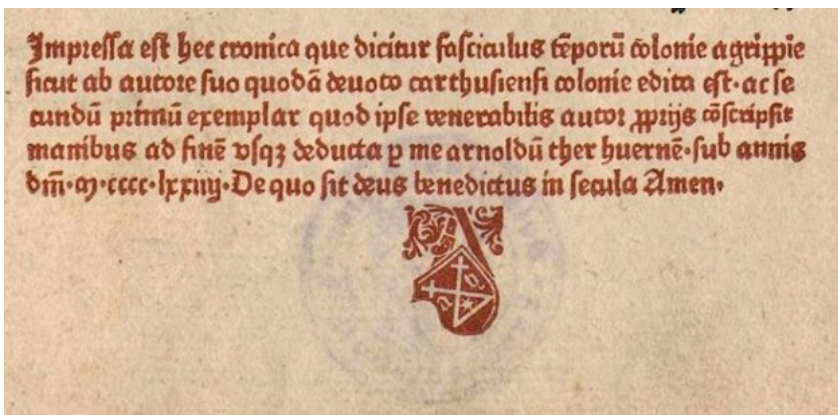 Impressa est hec cronica que dicitur fasciculus tēporū colonie agrippie
sicut ab autore suo quodā deuoto carthusiensi colonie edita est· ac se
cundū primū exemplar quod ipse venerabilis autor ꝓprijs cōscripsit
manibus ad finē vsqꝫ deducta ꝑ me arnoldū ther huernē· sub annis
dm̄· m· cccc· lxxiiij· De quo sit deus benedictus in secula Amen·